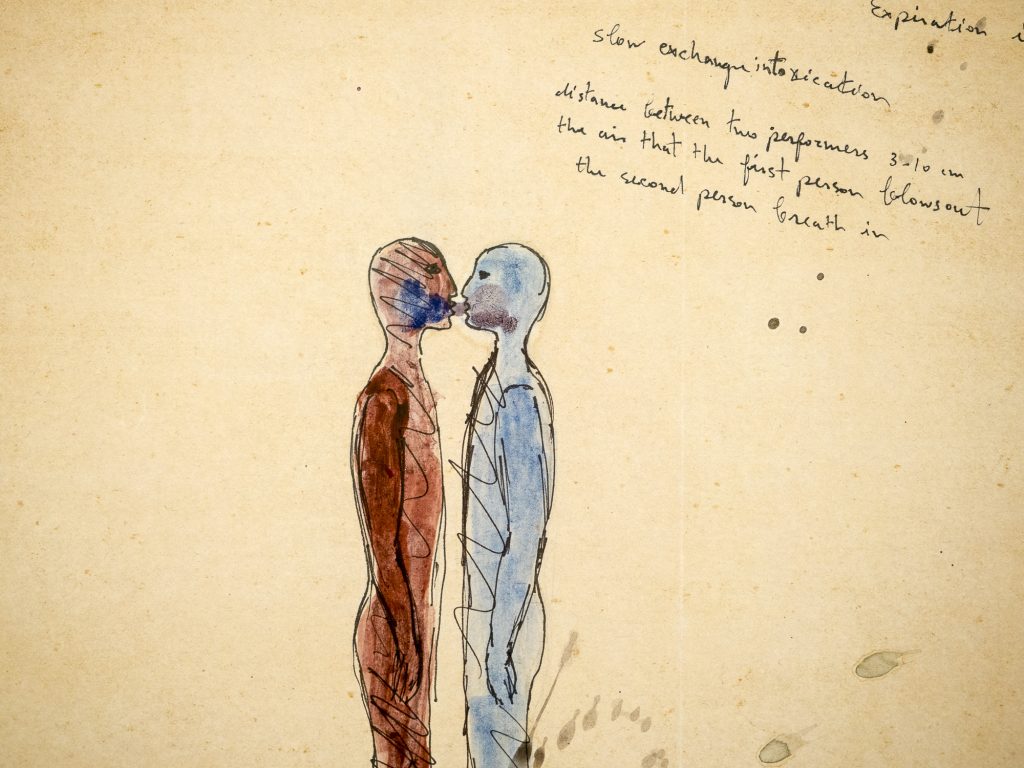 Expiration i
slow exchange intoxication
distance between two performers 3-10 cm
the air that the first person blows out
the second person breath in